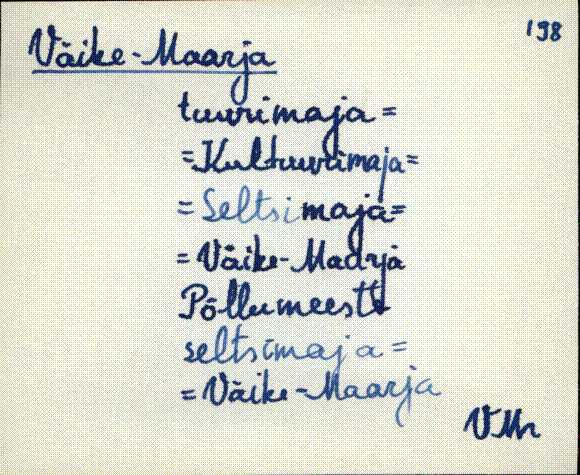 Väike-Maarja
198
tuurimaja =
=Kultuurimaja=
= Seltsimaja=
= Väike-Maarja
Põllumeeste
seltsimaja =
= Väike-Maarja
VMr